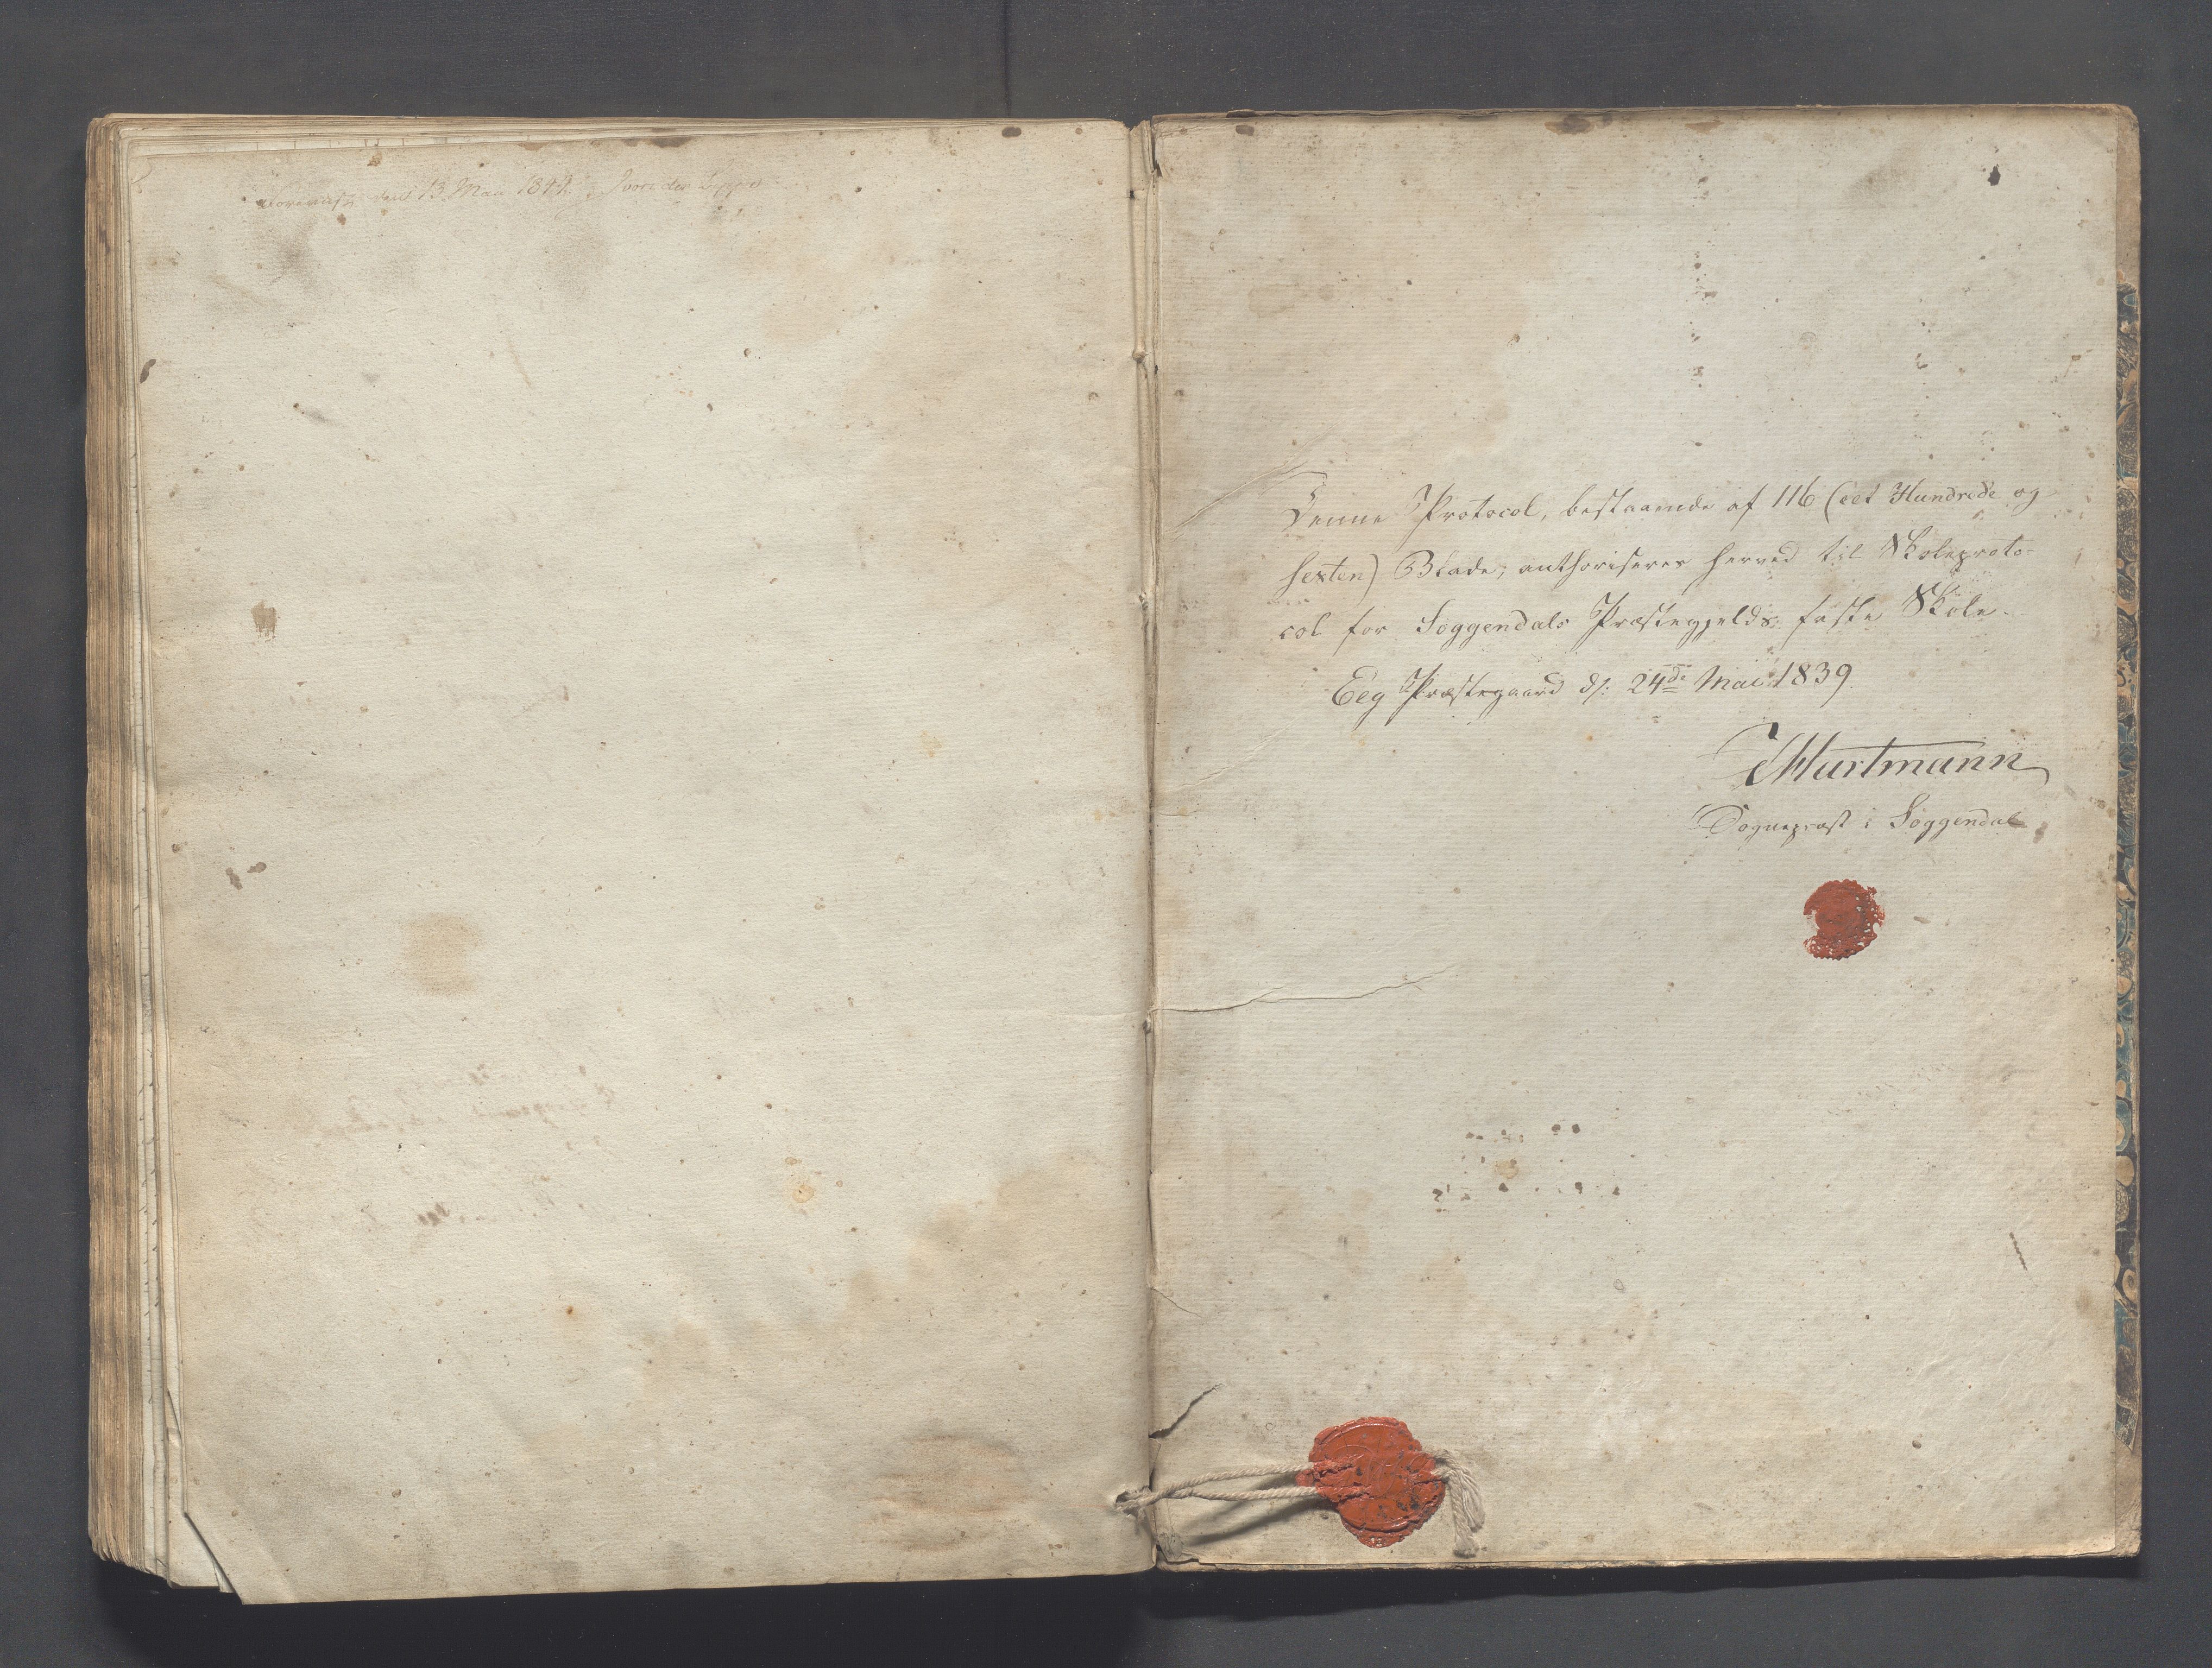 Foreviist den 13 Mai 184
Denne Protocol, bestaaende af 116 (eet Hundrede og
sexten) Blade, authoriseres herved til Skoleproto-
col for Soggendals Præstegjelds faste Skole.
Eeg Præstegaard d/: 24de Mai 1839.
Hartmann
Sognepræst i Soggendal